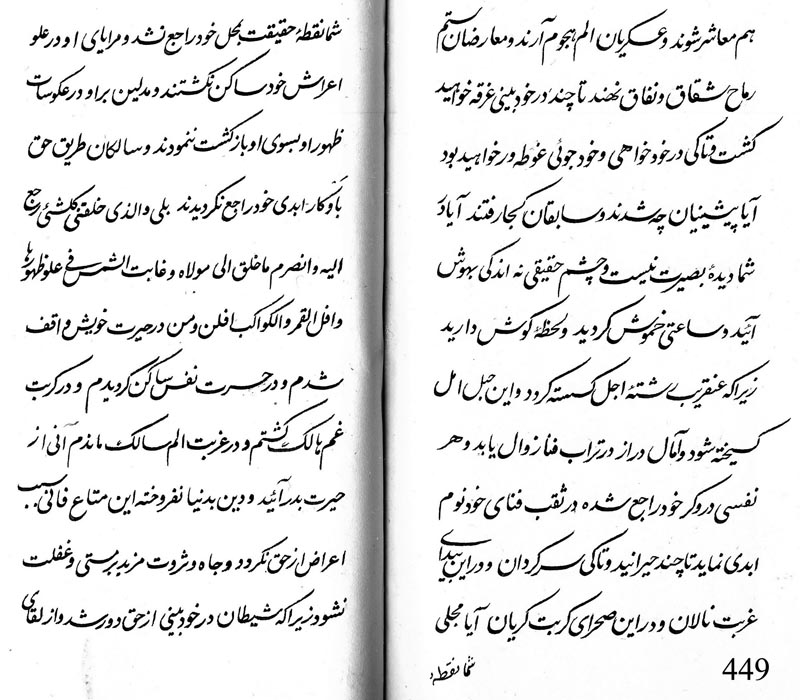 هم معاشر شوند و عسکریان الم هجوم آرند و معارضان ستم
رماح شقاق و نفاق نهند تا چند در خودبینی غرقه خواهید
گشت و تاکی در خودخواهی و خودجوئی غوطه‌ور خواهید بود
آیا پیشینیان چه شدند و سابقان کجا رفتند آیا در
شما دیدهٔ بصیرت نیست و چشم حقیقی نه اندکی بهوش
آئید و ساعتی خموش گردید و لحظهٔ گوش دارید
زیرا که عنقریب رشتهٔ اجل گسسته گردد و این حبل امل
گسیخته شود و آمال دراز در تراب فنا زوال یابد و هر
نفسی در وکر خود راجع شده در ثقب فنای خود نوم
ابدی نماید تا چند حیرانید و تاکی سرگردان و در این بیدای
غربت نالان و در این صحرای کربت گریان آیا مجلی
شما نقطه
449
شما نقطهٔ حقیقت بمحل خود راجع نشد و مرایای او در علو
اعراش خود ساکن نگشتند و مدلین بر او در عکوسات
ظهور او بسوی او بازگشت ننمودند و سالکان طریق حق
باوکار ابدی خود راجع نگردیدند بلی والذی خلقنی کلشئی رجع
الیه وانصرم ما خلق الی مولاه و غابت الشمس فی علو ظهورها
وافل القمر والکواکب افلن ومن در حیرت خویش واقف
شدم و در حسرت نفس ساکن گردیدم و در کربت
غم هالک گشتم و در غربت الم سالک ماندم آنی از
حیرت بدر آئید و دین بدنیا نفروخته این متاع فانی سبب
اعراض از حق نگردد و جاه و ثروت مزید بر مستی و غفلت
نشود زیرا که شیطان در خودبینی از حق دور شد و از لقای